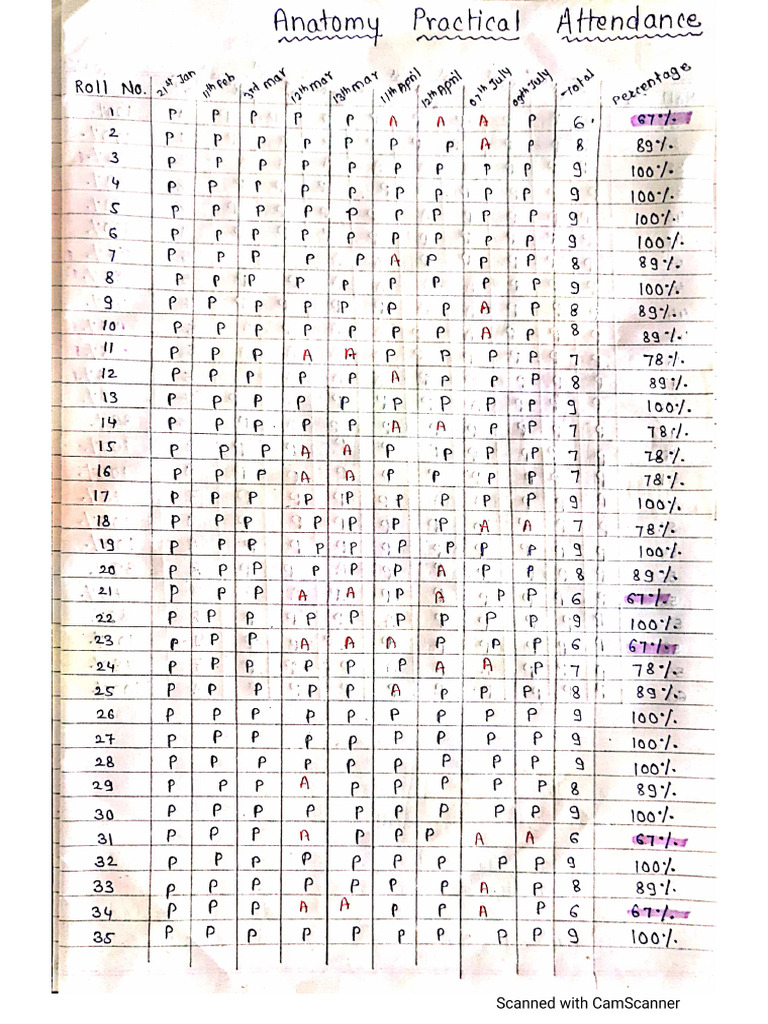 Anatomy Practical Attendance
Roll No. 21st Jan 11th Feb 3rd mar 12th mar 13th mar 11th April 12th April 07th July 09th July Total Percentage
1 P P P P P A A A P 6 67%
2 P P P P P P P A P 8 89%
3 P P P P P P P P P 9 100%
4 P P P P P P P P P 9 100%
5 P P P P P P P P P 9 100%
6 P P P P P P P P P 9 100%
7 P P P P P A P P P 8 89%
8 P P P P P P P P P 9 100%
9 P P P P P P P A P 8 89%
10 P P P P P P P A P 8 89%
11 P P P A A P P P P 7 78%
12 P P P P P A P P P 8 89%
13 P P P P P P P P P 9 100%
14 P P P P P A A P P 7 78%
15 P P P A A P P P P 7 78%
16 P P P A A P P P P 7 78%
17 P P P P P P P P P 9 100%
18 P P P P P P P A A 7 78%
19 P P P P P P P P P 9 100%
20 P P P P P P A P P 8 89%
21 P P P A A P A P P 6 67%
22 P P P P P P P P P 9 100%
23 P P P A A A P P P 6 67%
24 P P P P P P A A P 7 78%
25 P P P P P A P P P 8 89%
26 P P P P P P P P P 9 100%
27 P P P P P P P P P 9 100%
28 P P P P P P P P P 9 100%
29 P P P A P P P P P 8 89%
30 P P P P P P P P P 9 100%
31 P P P A P P P A A 6 67%
32 P P P P P P P P P 9 100%
33 P P P P P P P A P 8 89%
34 P P P A A P P A P 6 67%
35 P P P P P P P P P 9 100%
Scanned with CamScanner